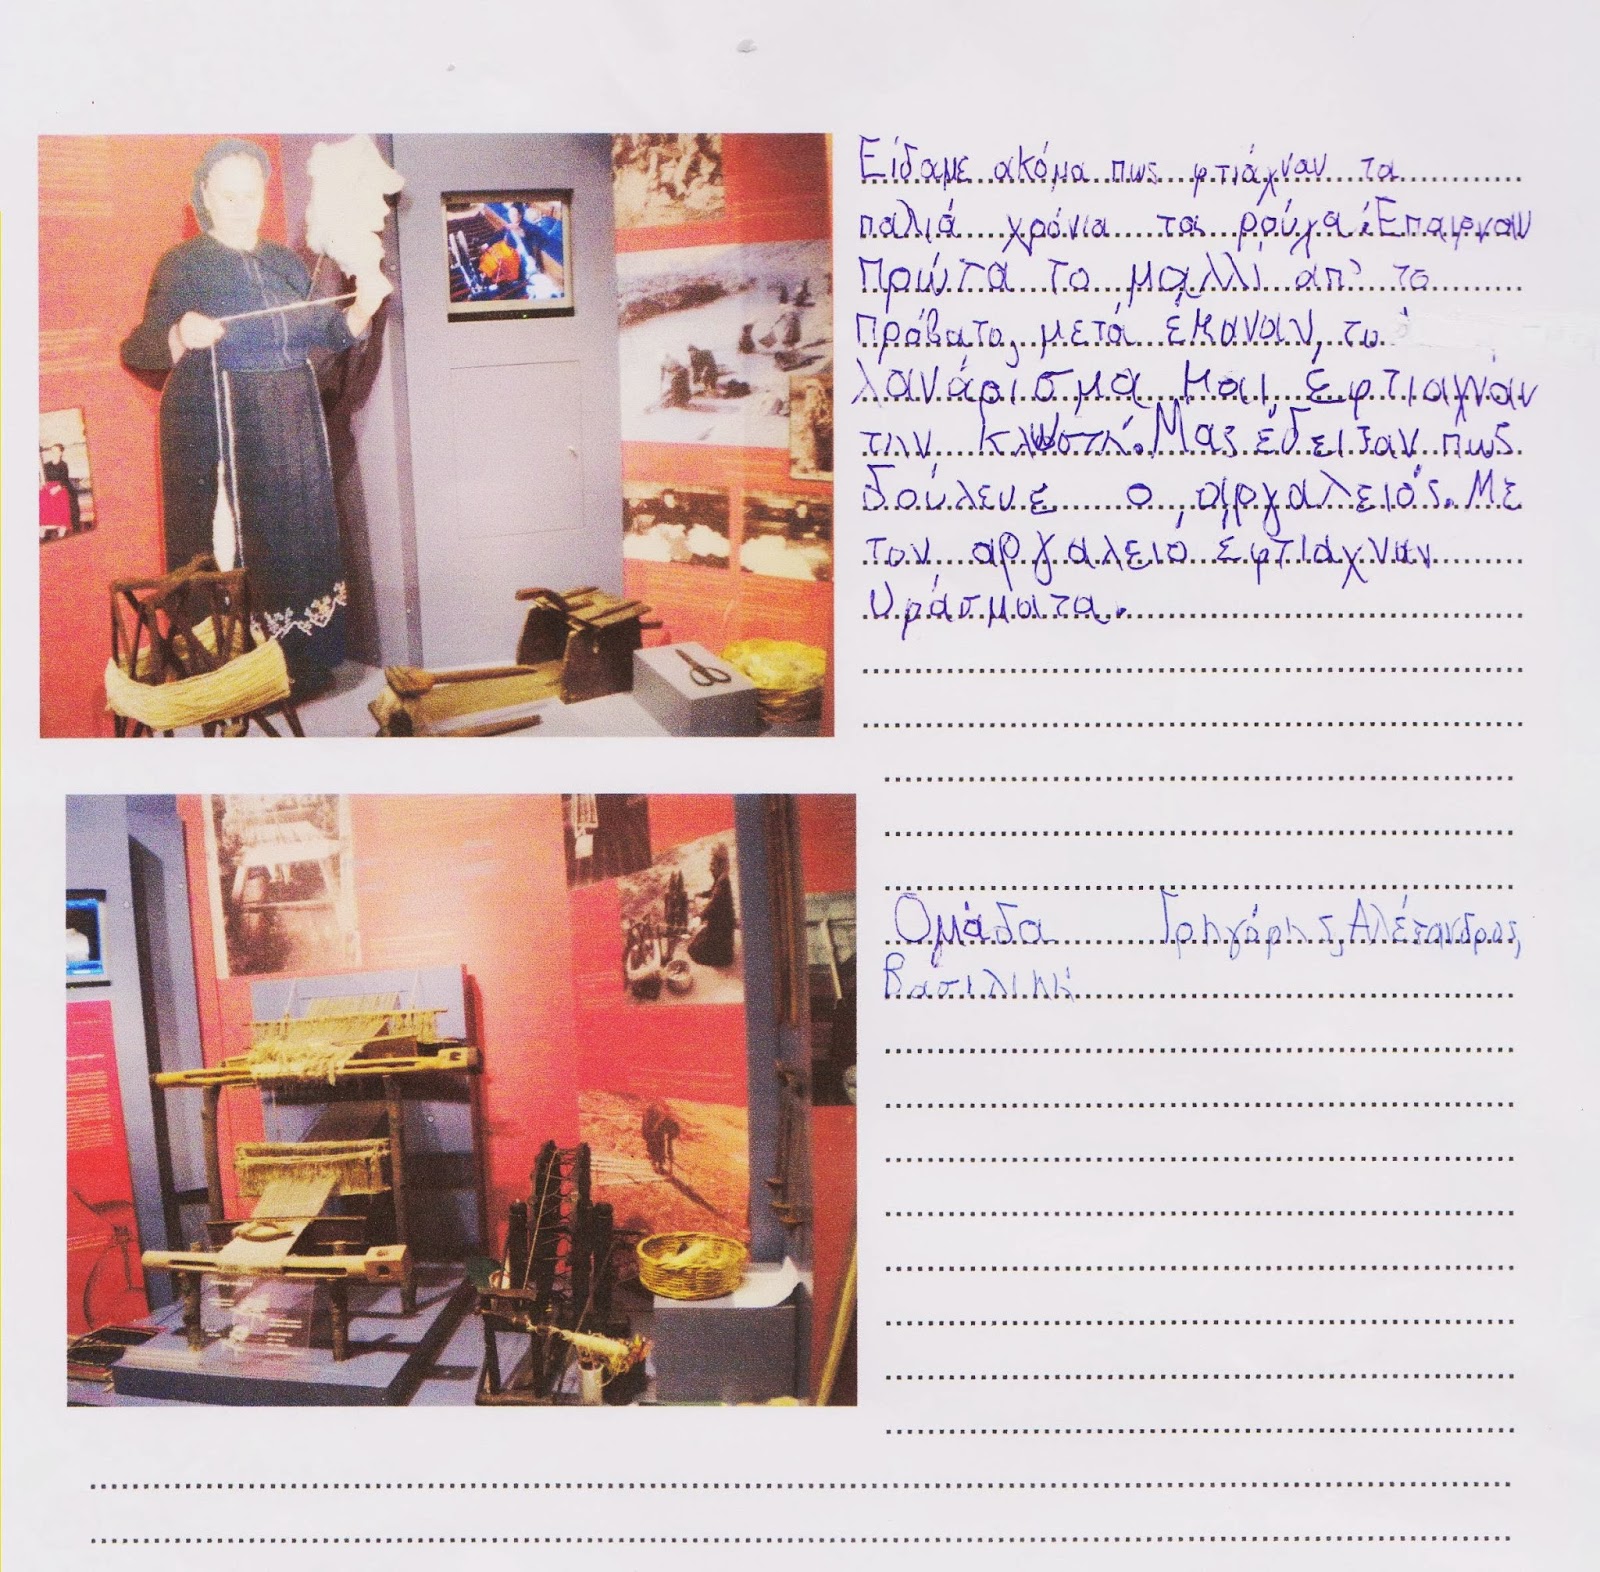 Είδαμε ακόμα πως φτιάχναν τα
παλιά χρόνια τα ρούχα. Επαιρναν
πρώτα το μαλλί απ' το
πρόβατο, μετά έκαναν το
λανάρισμα και έφτιαχναν
την κλωστή. Μας έδειξαν πως
δούλευε ο αργαλειός. Με
τον αργαλειό έφτιαχναν
υφάσματα.
Ομάδα Γρηγόρης, Αλέξανδρος,
Βασιλική